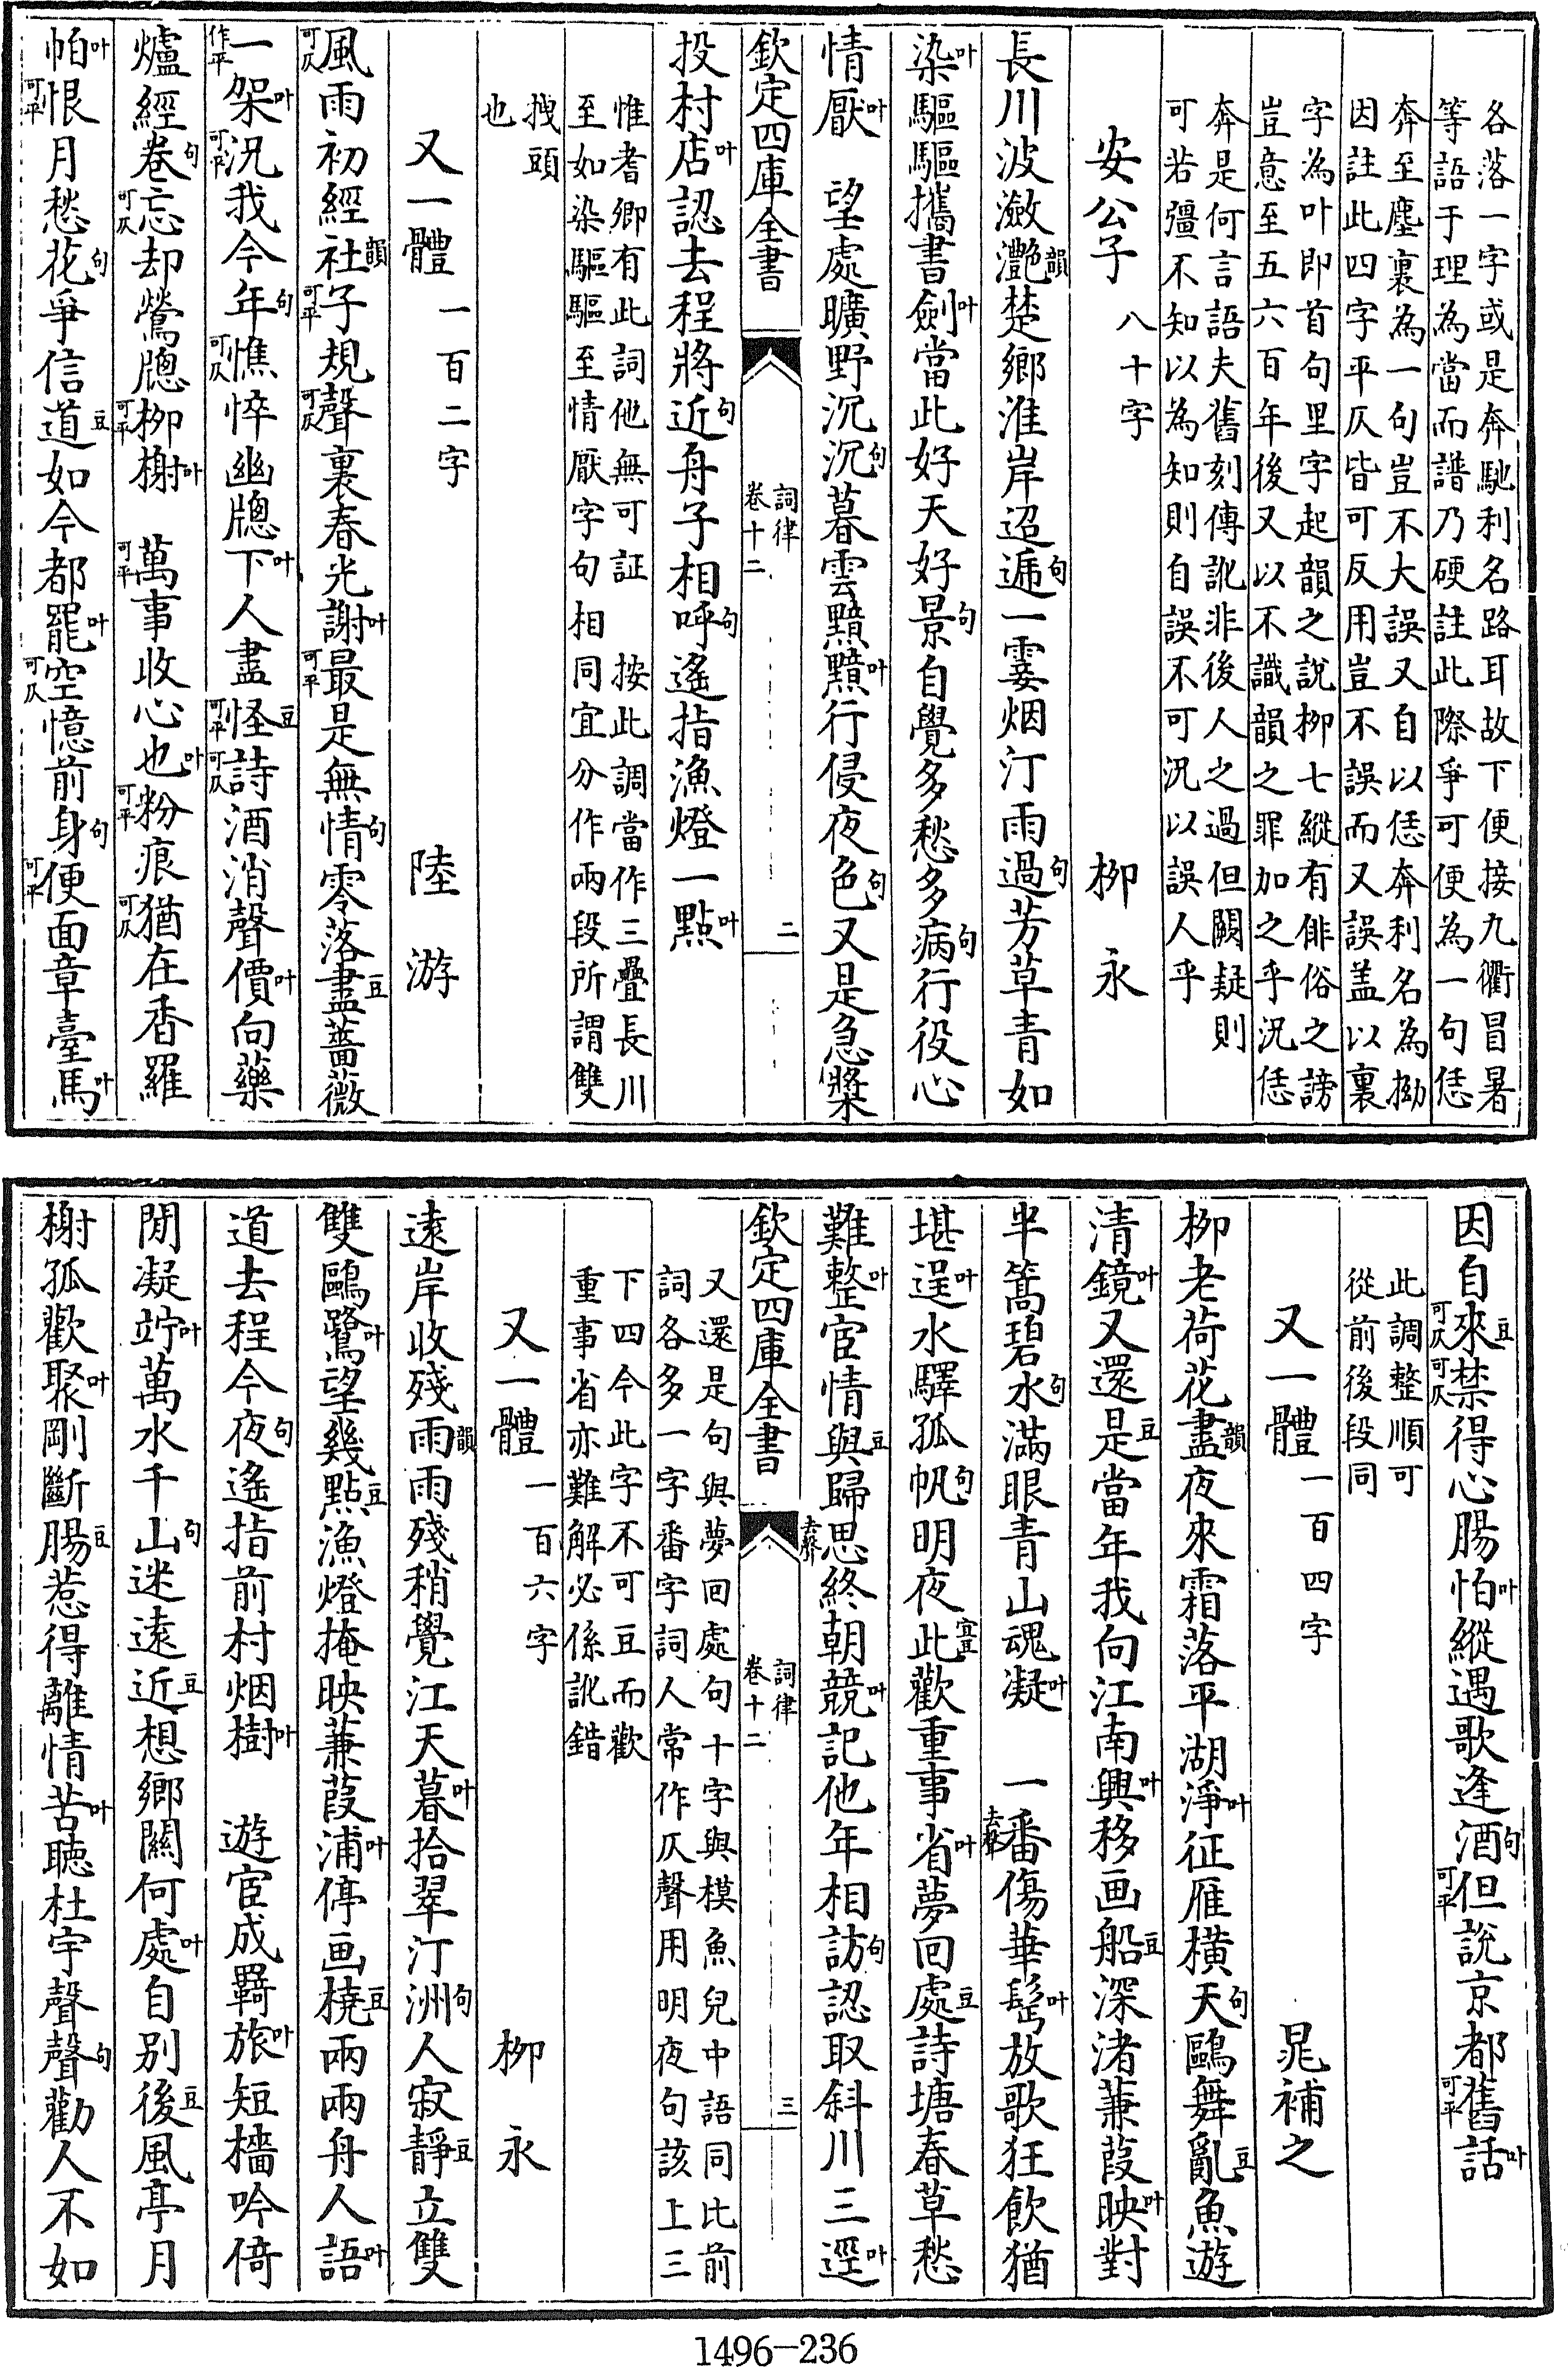 各落一字或是奔馳利名路耳故下便接九衢冒暑
等語于理為當而譜乃硬註此際爭可便為一句恁
奔至塵裏為一句豈不大誤又自以恁奔利名為拗
因註此四字平仄皆可反用豈不誤而又誤盖以裏
字為叶即首句里字起韻之說柳七縱有俳俗之謗
豈意至五六百年後又以不識韻之罪加之乎況恁
奔是何言語夫舊刻傳訛非後人之過但闕疑則
可若彊不知以為知則自誤不可況以誤人乎
安公子 八十字 柳永
長川波瀲灧韻楚鄉淮岸迢遞句一霎烟汀雨過句芳草青如
染叶驅驅攜書劍叶當此好天好景句自覺多愁多病句行役心
情厭叶 望處曠野沉沉句暮雲黯黯叶行侵夜色句又是急槳
欽定四庫全書 詞律 卷十二 二
投村店叶認去程將近句舟子相呼句遙指漁燈一點叶
惟耆卿有此詞他無可証 按此調當作三疊長川
至如染驅驅至情厭字句相同宜分作兩段所謂雙
拽頭
也
又一體 一百二字 陸游
風可仄雨初經社韻子可平規聲可仄裏春光謝叶最可平是無情句零落盡豆薔薇
一作平架叶況可平我今年句憔可仄悴幽牕下叶人盡怪豆可平詩可仄酒消聲價叶向藥
爐經卷句忘可仄却鶯牕柳可平榭叶 萬可平事收心也叶粉可平痕猶可仄在香羅
帕叶恨可平月愁花句爭信道豆如今都罷叶空可仄憶前身句便可平面章臺馬叶
因自來豆可仄禁可仄得心腸怕叶縱遇歌逢酒句但可平說京都舊可平話叶
此調整順可
從前後段同
又一體 一百四字 晁補之
柳老荷花盡韻夜來霜落平湖淨叶征雁橫天句鷗舞亂豆魚遊
清鏡叶又還是豆當年我向江南興叶移画船豆深渚蒹葭映叶對
半篙碧水句滿眼青山魂凝叶 一番去聲傷華髩叶放歌狂飲猶
堪逞叶水驛孤帆句明夜此宜豆歡重事省叶夢回處豆詩塘春草愁
難整叶宦情與豆歸思去聲終朝競叶記他年相訪句認取斜川三逕叶
欽定四庫全書 詞律 卷十二 三
又還是句與夢回處句十字與模魚兒中語同比前
詞各多一字番字詞人常作仄聲用明夜句該上三
下四今此字不可豆而歡
重事省亦難解必係訛錯
又一體 一百六字 柳永
遠岸收殘雨韻雨殘稍覺江天暮叶拾翠汀洲句人寂靜豆立雙
雙鷗鷺叶望幾點豆漁燈掩映蒹葭浦叶停画橈豆兩兩舟人語叶
道去程今夜句遙指前村烟樹叶 遊宦成羇旅叶短檣吟倚
閒凝竚叶萬水千山句迷遠近豆想鄉關何處叶自別後豆風亭月
榭孤歡聚叶剛斷腸豆惹得離情苦叶聽杜宇聲聲句勸人不如
1496-236